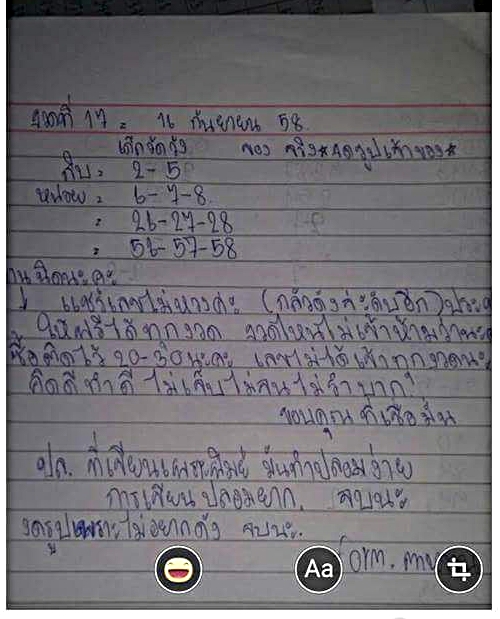 งวดที่ 17 = 16 กันยายน 58
เด็กวัดวัง ของ จริง*งดรูปเจ้าของ*
กีบ = 2-5
หน่อย = 6-7-8
= 26-27-28
= 56-57-58
นิดนะคะ
แชร์เลขไม่หวงค่ะ (กลัวดังค่ะดับอีก)
ให้ฟรีได้ทุกงวด งวดไหนไม่เข้าห้ามว่านะ
ซื้อติดไว้ 20-30 นะคะ เลขไม่ได้เข้าทุกงวดนะ
คิดดีทำดี ไม่เจ็บไม่จนไม่ลำบาก!
ขอบคุณ ที่เชื่อมั่น
ปล. ที่เขียนเพราะพิมย์ มันทำปลอมง่าย
การเขียน ปลอมยาก. จบนะ
งดรูปเพราะไม่อยากดัง จบนะ.
form.
Aa